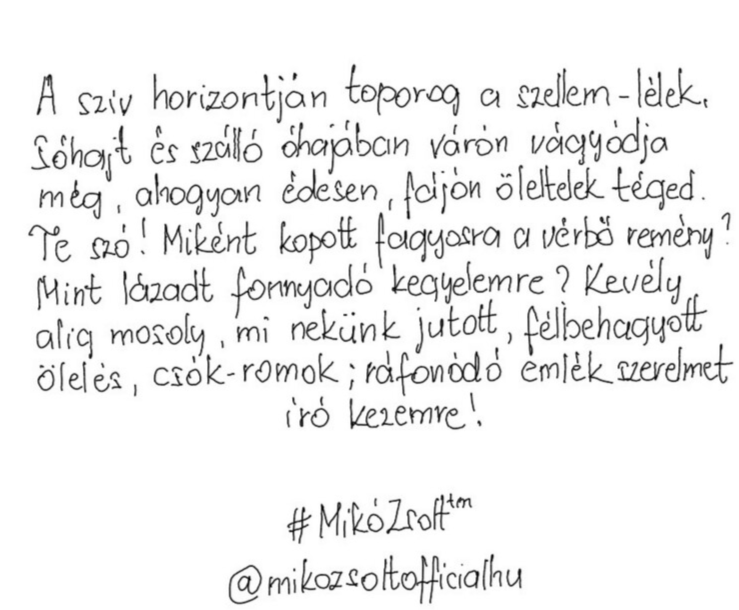 A szív horizontján toporog a szellem-lélek.
Sóhajt és szálló óhajában várón vágyódja
még, ahogyan édesen, fájón öleltelek téged.
Te szó! Miként kopott fagyosra a vérbő remény?
Mint lázadt fonnyadó kegyelemre? Kevély
alig mosoly, mi nekünk jutott, félbehagyott
ölelés, csók-romok; ráfonódó emlék szerelmet
író kezemre!
#MikóZsolt™
@mikozsoltofficialhu